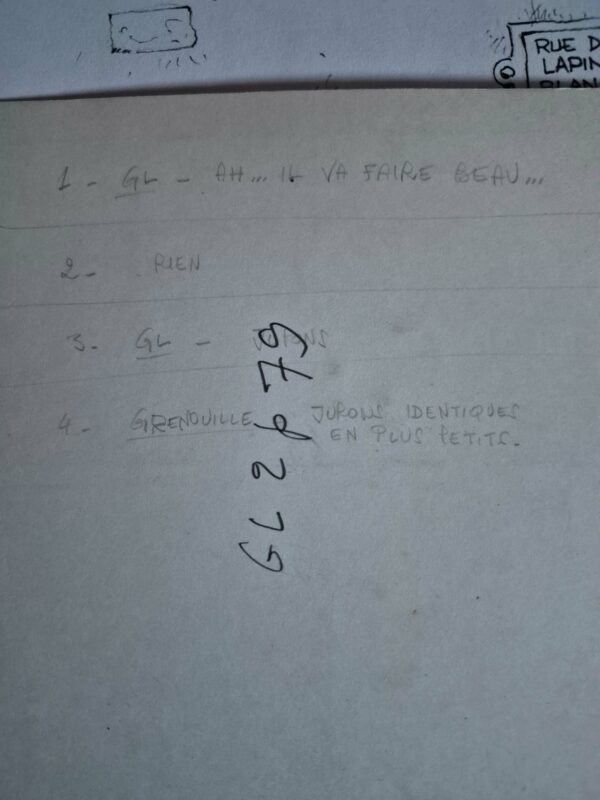 RUE D
LAPIN
1 - GL - AH... IL VA FAIRE BEAU...
2 - RIEN
3. GL -
4 - GRENOUILLE JURONS IDENTIQUES
EN PLUS PETITS.